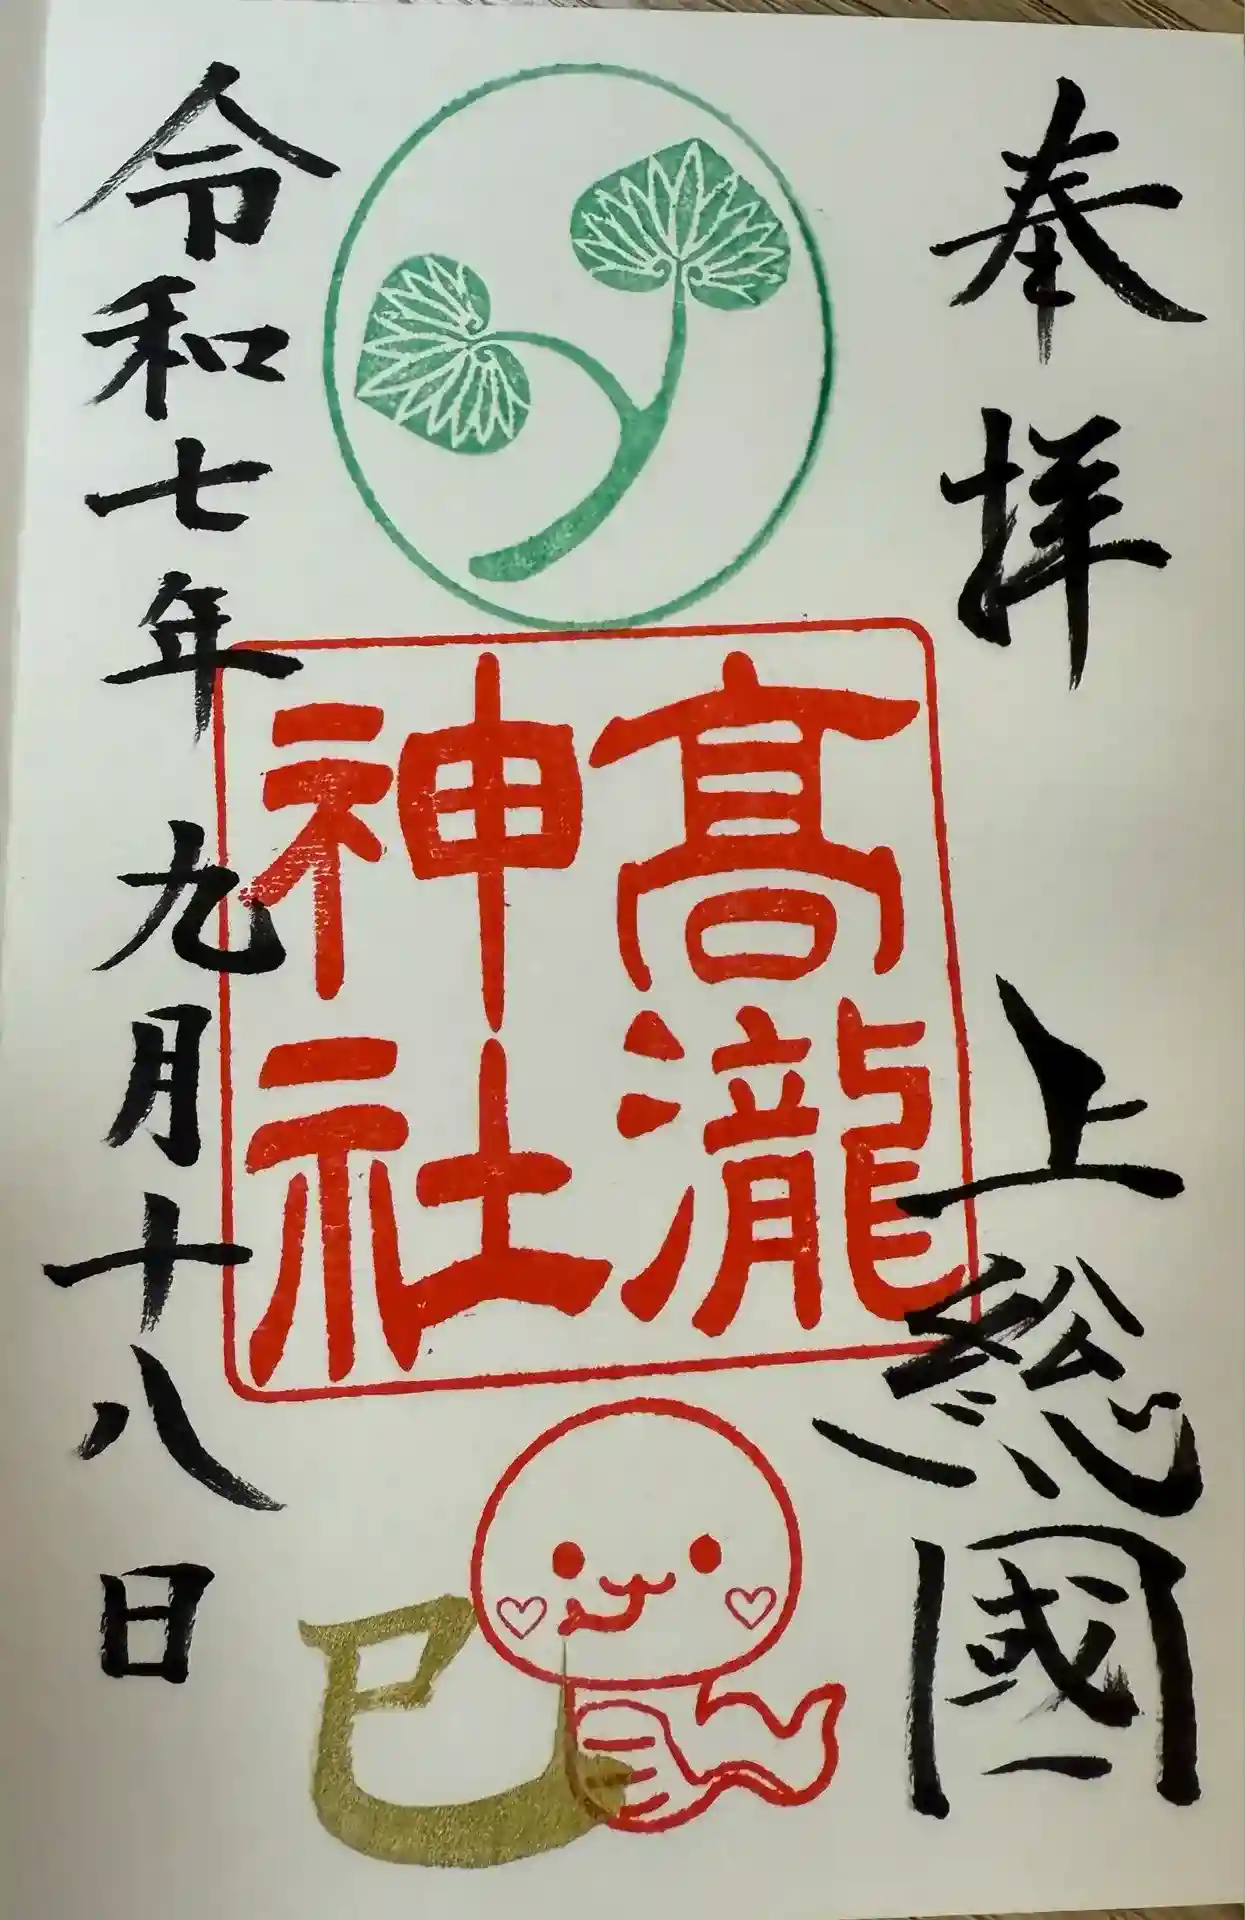 奉拝
上総國
髙瀧
神社
令和七年九月十八日
巳